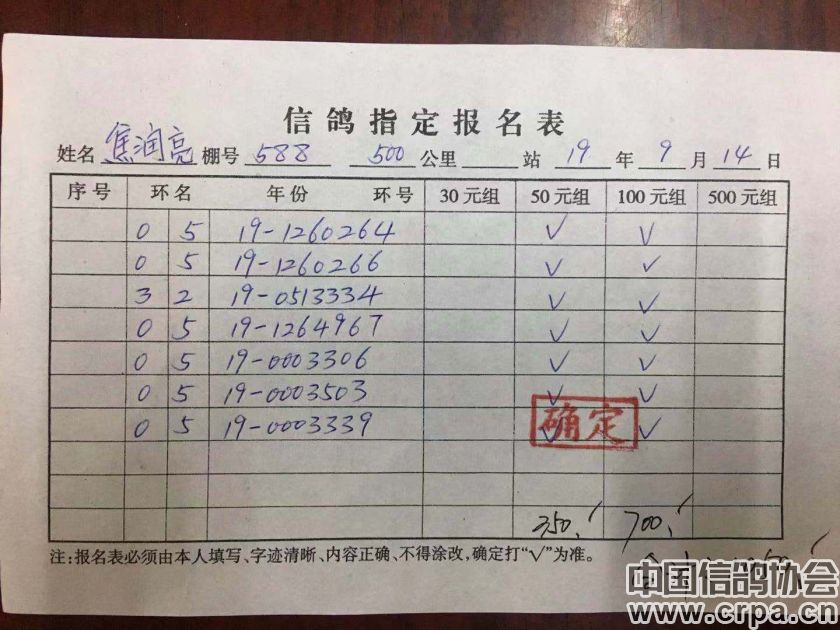 信鸽指定报名表
姓名 焦润亮 棚号 588 500 公里 站 19 年 9 月 14 日
序号 环名 年份 环号 30元组 50元组 100元组 500元组
0 5 19-1260264 √ √
0 5 19-1260266 √ √
3 2 19-0513334 √ √
0 5 19-1264967 √ √
0 5 19-0003306 √ √
0 5 19-0003503 √ √
0 5 19-0003339 √ √
确定
350 700
注:报名表必须由本人填写、字迹清晰、内容正确、不得涂改,确定打“√”为准。
中国信鸽协会
www.crpa.cn